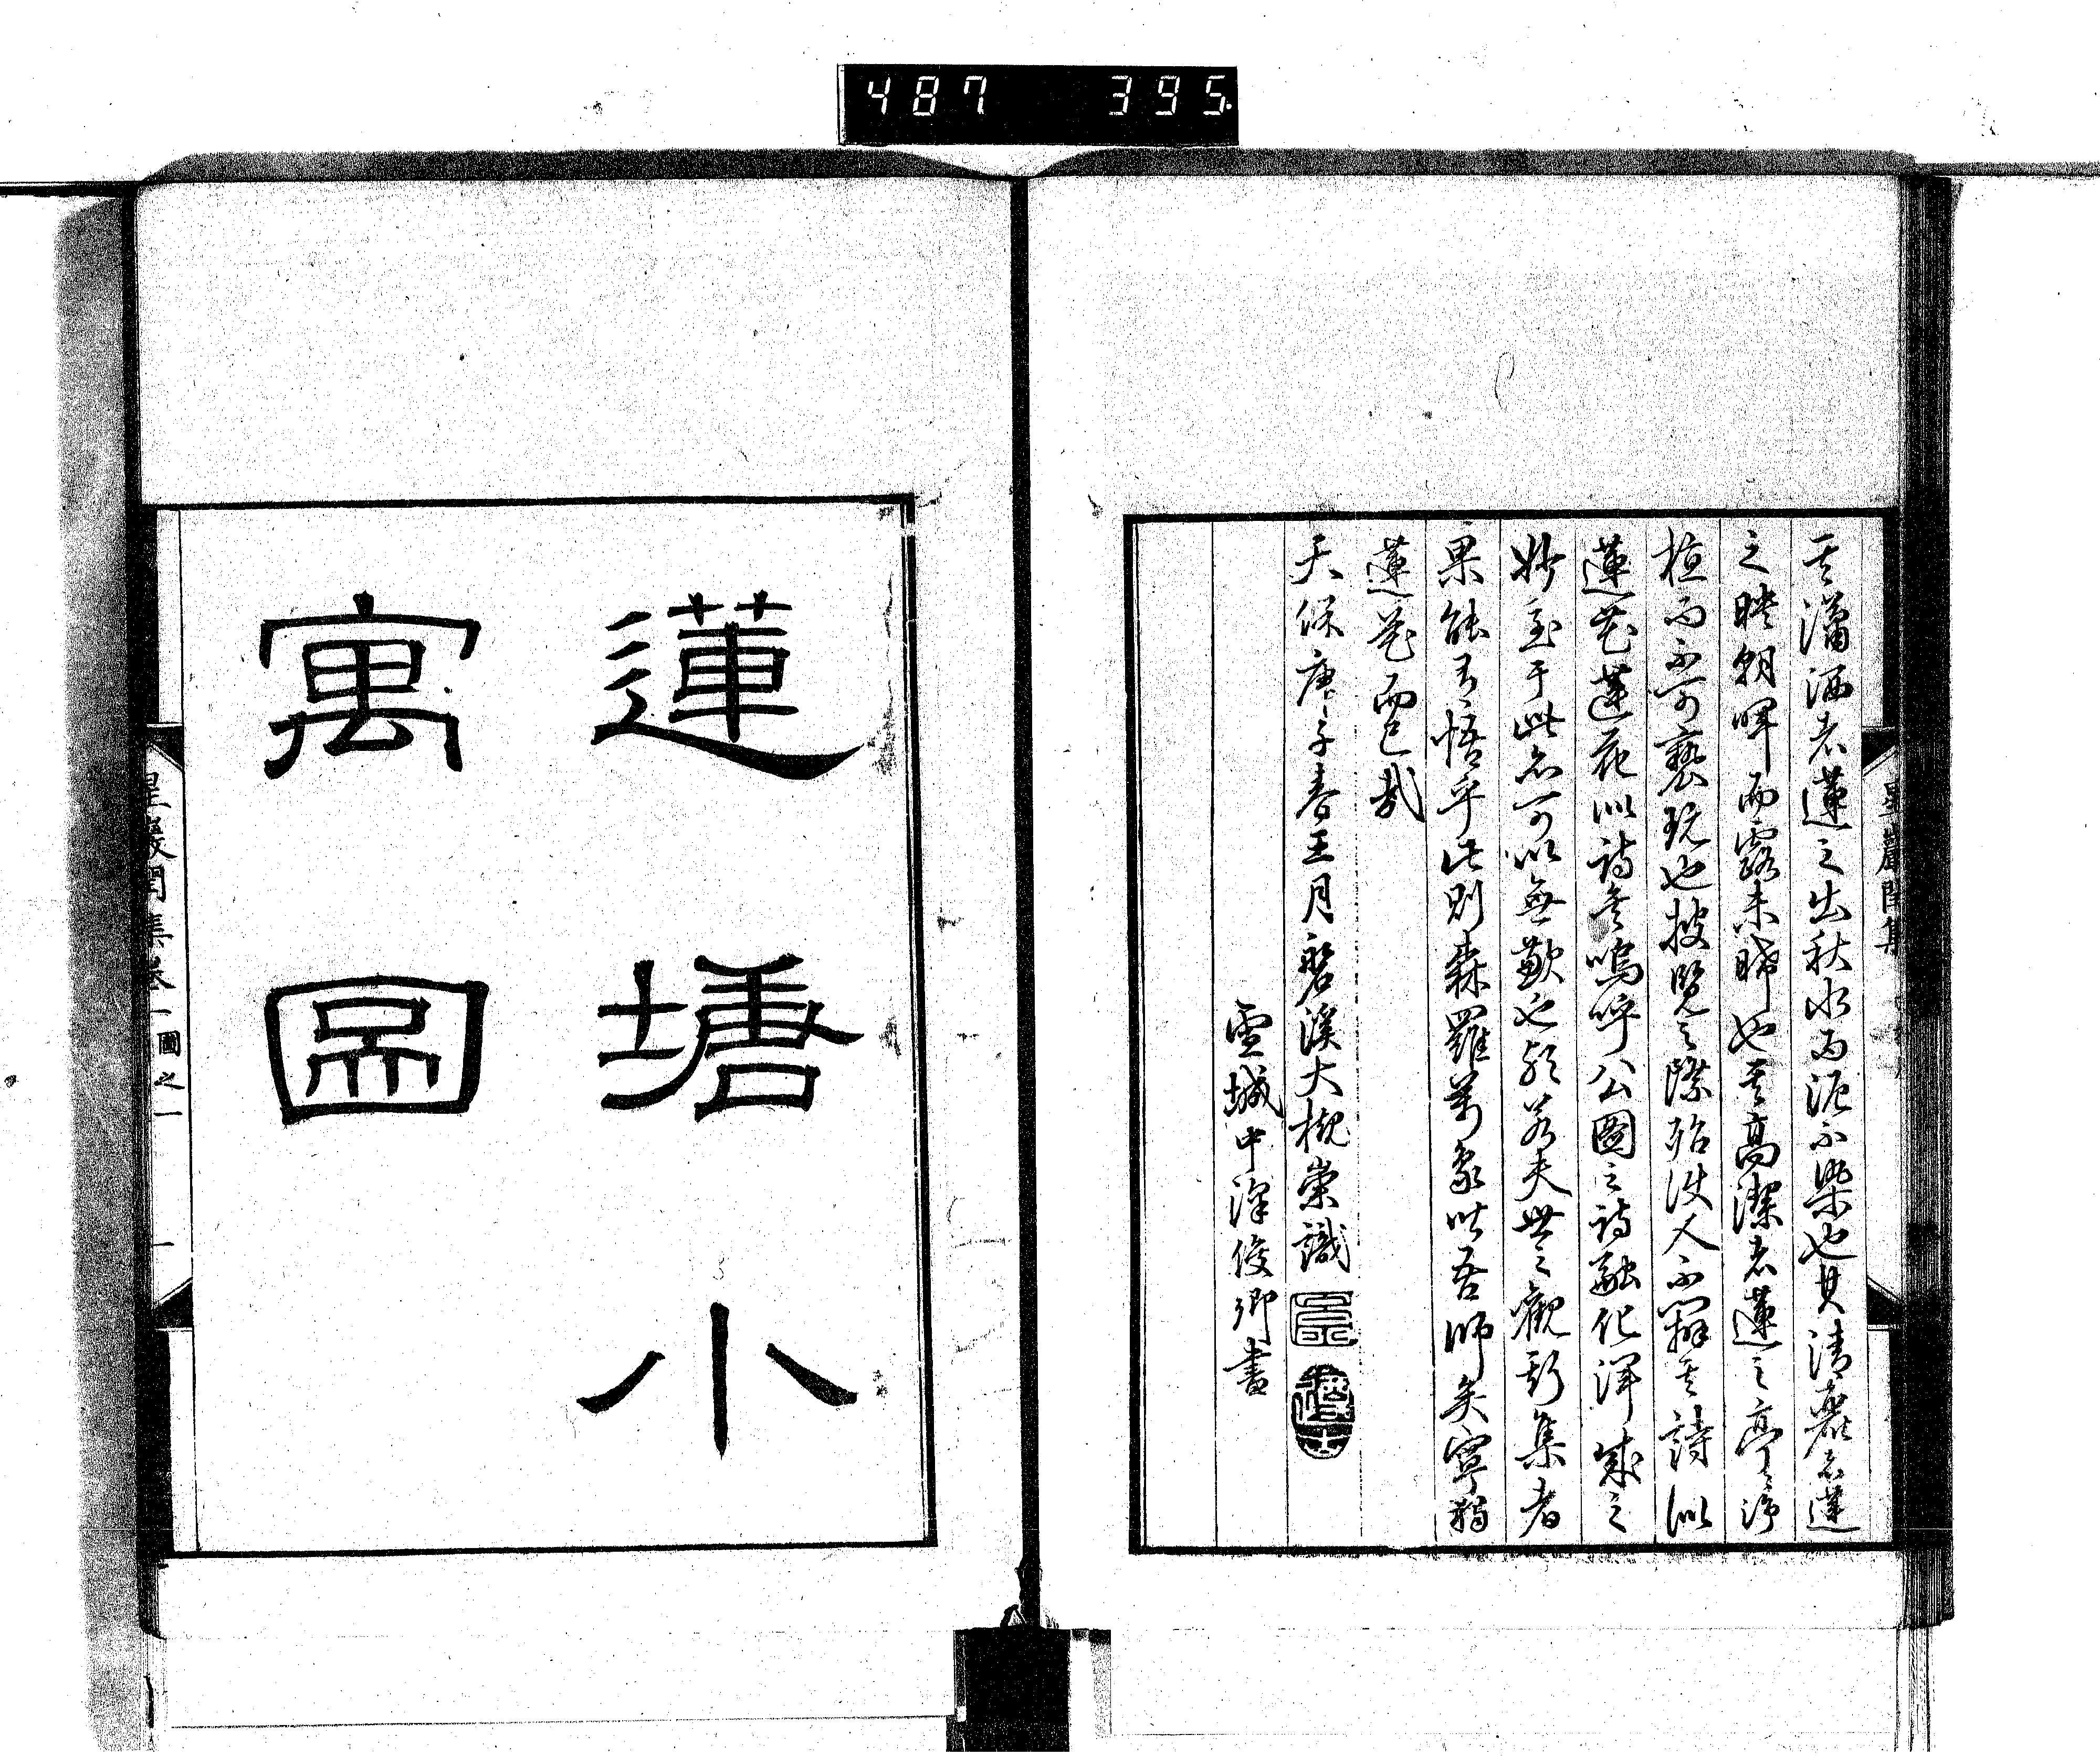 487 395
其瀟洒者蓮之出秋水而泥不染也其清麗者蓮
之映朝暉而露未晞也其高潔者蓮之亭亭淨
植而不可褻玩也披覽之際殆使人不辨其詩似
蓮花蓮花似詩矣嗚呼公圖之詩融化渾成之
妙至于此亦可以無歎也顧若夫世之觀斯集者
果能有悟乎此則森羅萬象皆吾師矣寧獨
蓮花而已哉
天保庚子春王月磐溪大槻崇識
霊城中澤俊卿書
星巖閏集
蓮塘小
寓圖
星巖閏集卷一 圖之一 一